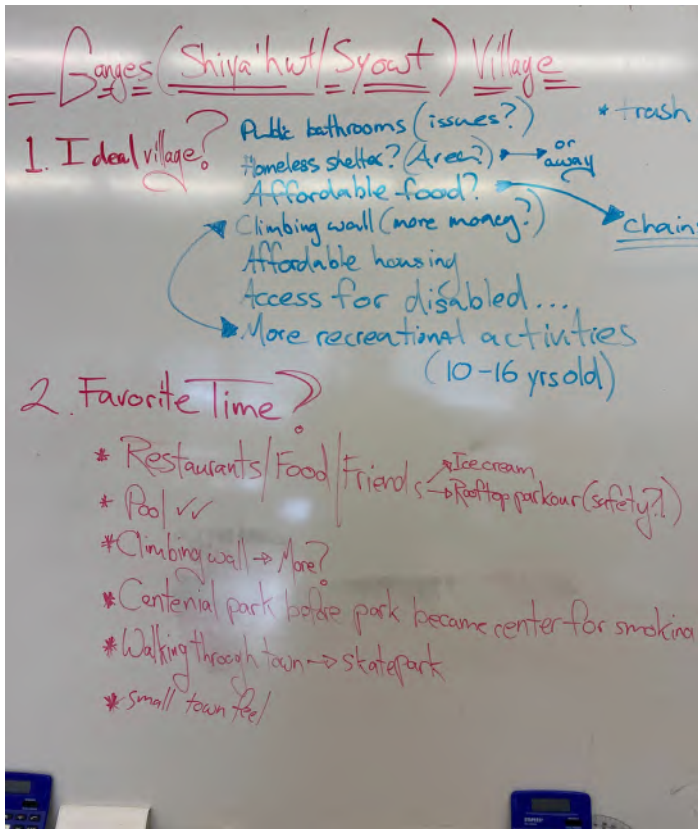 Ganges (Shiya'hwt/Syowt) Village
1. Ideal village?
Public bathrooms (issues?)
* trash
Homeless shelter? (Area?) → or away
Affordable food?
chain
Climbing wall (more money?)
Affordable housing
Access for disabled...
More recreational activities
(10-16 yrs old)
2. Favorite Time?
* Restaurants/Food/Friends → Ice cream
→ Rooftop parkour (safety?!)
* Pool ✓✓
* Climbing wall → More?
* Centenial park before park became center for smoking
* Walking through town → skatepark
* small town feel